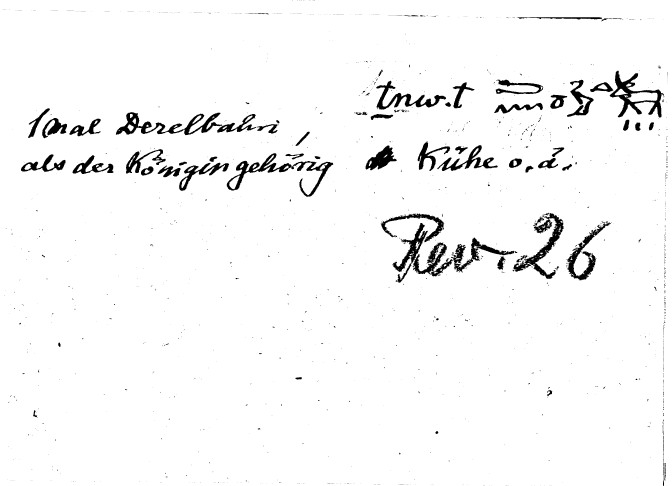 1 mal Derelbahri,
als der Königin gehörig
ṯnw.t
Kühe o.ä.
Rev. 26